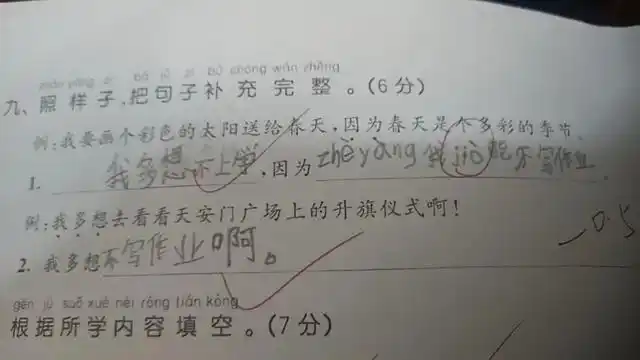 zhào yàng zi bǎ jù zi bǔ chōng wán zhěng
九、照样子,把句子补充完整。(6分)
例:我要画个彩色的太阳送给春天,因为春天是个多彩的季节。
1. 我多想不上学,因为zhèyàng我jiù能不写作业.
例:我多想去看看天安门广场上的升旗仪式啊!
-0.5
2. 我多想不写作业啊。
gēn jù suǒ xué nèi róng tián kòng
根据所学内容填空。(7分)